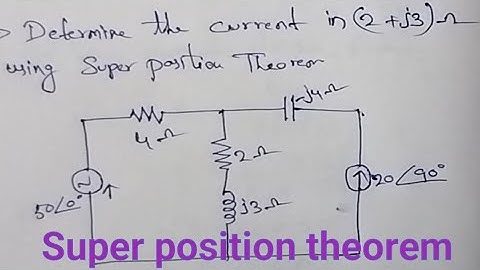 > Determine the current in (2+j3)Ω
using Super position Theorem
-j4Ω
4Ω
2Ω
50∠0°
20∠90°
j3Ω
Super position theorem